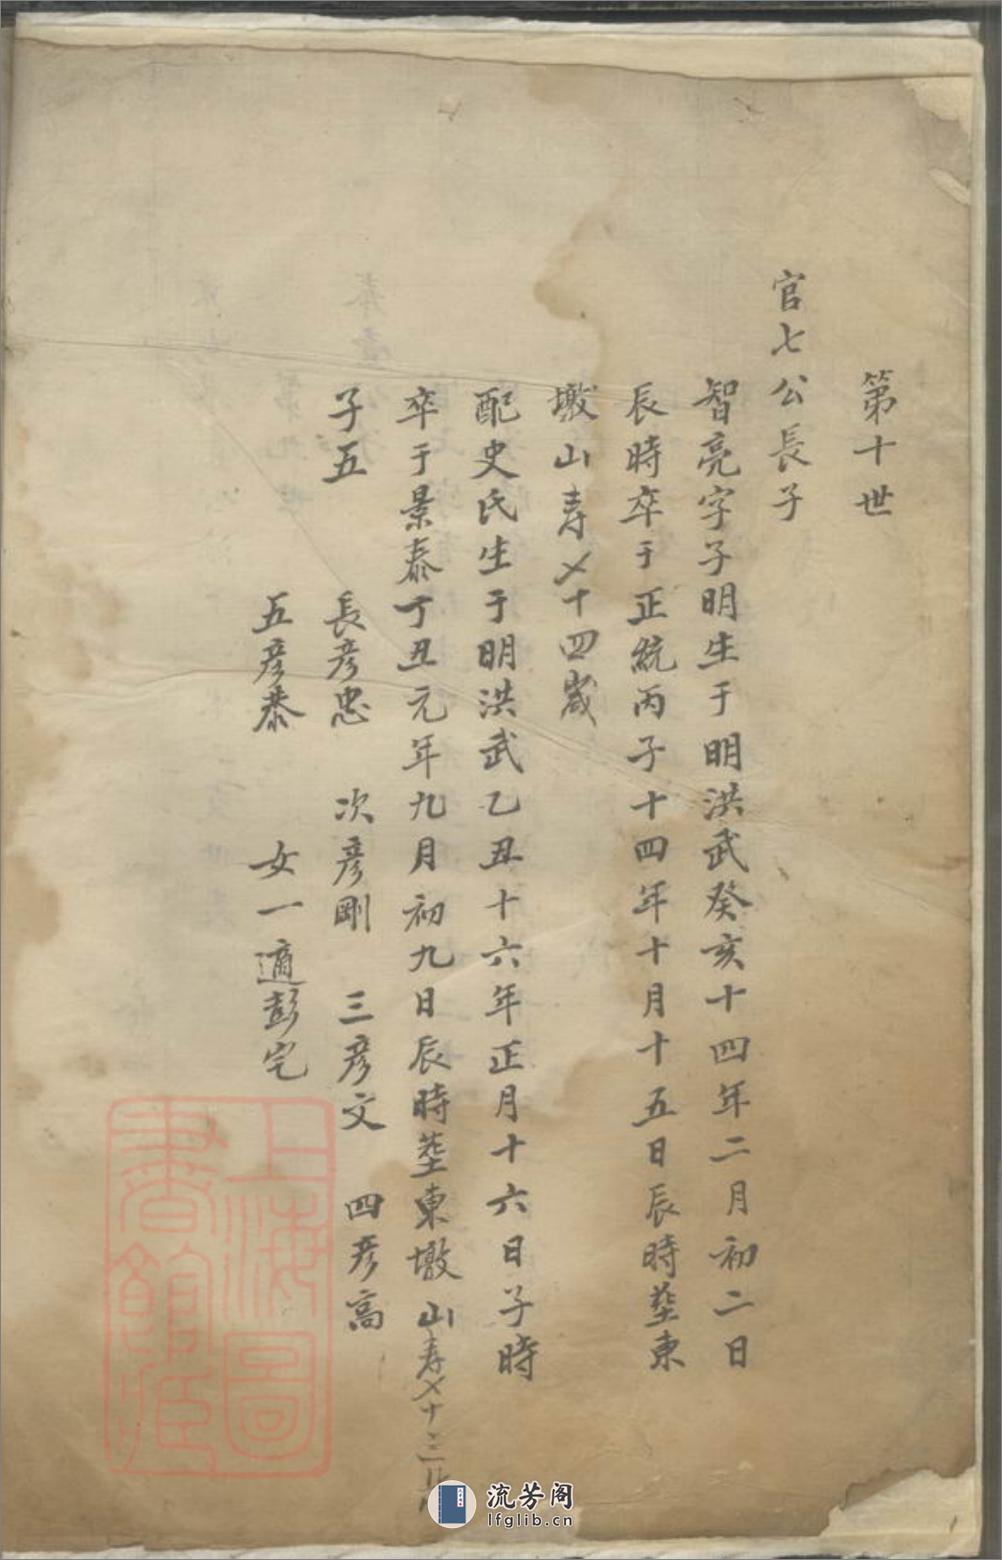 第十世
官七公長子
智亮字子明生于明洪武癸亥十四年二月初二日
辰時卒于正統丙子十四年十月十五日辰時塟東
墩山寿〤十四歲
配史氏生于明洪武乙丑十六年正月十六日子時
卒于景泰丁丑元年九月初九日辰時塟東墩山寿〤十三
子五　長彦忠　次彦剛　三彦文　四彦高
五彦泰　女一適彭宅
上海圖
書館藏
流芳阁
lfglib.cn